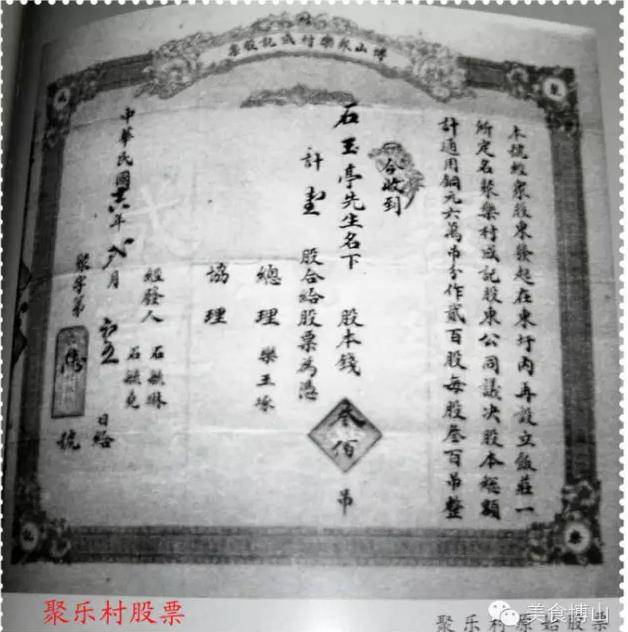 博山聚樂村成記股票
本號經眾股東發起在東圩內再設立飯莊一
所定名聚樂村成記股東公同議决股本總額
計通用銅元六萬吊分作貳百股每股叁百吊整
今收到
石玉亭先生名下 股本錢 叁佰 吊
計 壹 股合給股票為憑
總理 欒玉琢
協理
經發人 石毓琳
石毓堯
中華民國 年 月 日給
聚字第 號
聚乐村股票
聚乐村原始股票
美食博山